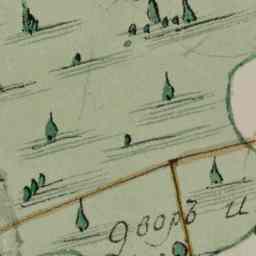 дворъ и